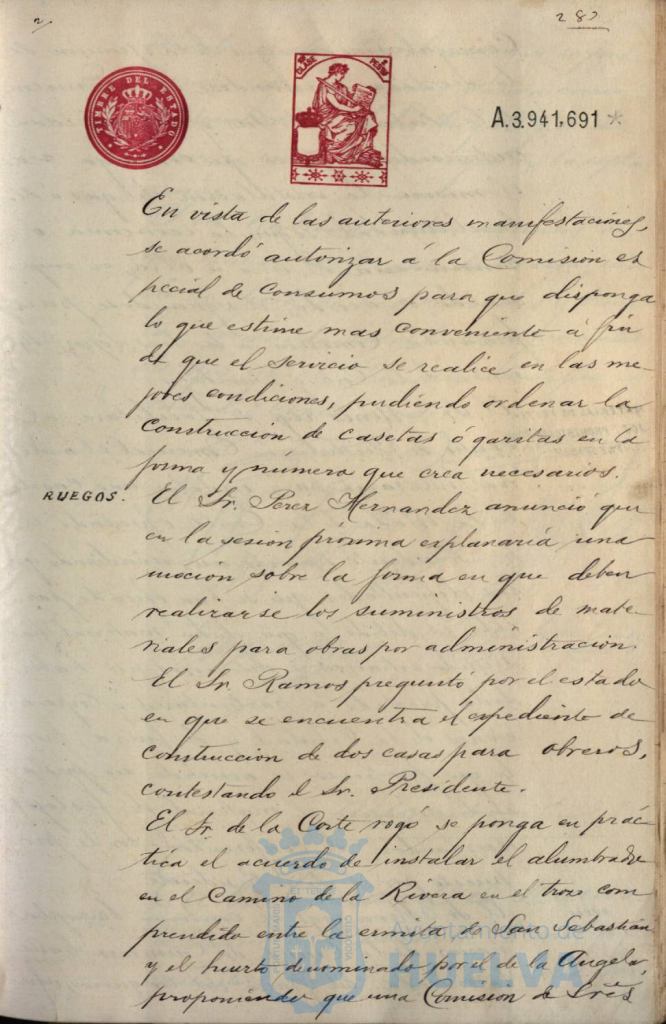 287
TIMBRE DEL ESTADO
CLASE
A.3.941,691 *
En vista de las anteriores manifestaciones,
se acordó autorizar á la Comisión es
pecial de Consumos para que disponga
lo que estime mas conveniente á fin
de que el servicio se realice en las me-
jores condiciones, pudiendo ordenar la
construcción de casetas ó garitas en la
forma y número que crea necesarios.
RUEGOS.
El Sr. Perez Hernandez anunció que
en la sesión próxima esplanaría una
moción sobre la forma en que deben
realizarse los suministros de mate-
riales para obras por administración.
El Sr. Ramos preguntó por el estado
en que se encuentra el espediente de
construccion de dos casas para obreros,
contestando el Sr. Presidente.
El Sr. de la Corte rogó se ponga en prác
tica el acuerdo de instalar el alumbrado
en el Camino de la Rivera en el trozo com
prendido entre la ermita de San Sebastián
y el huerto denominado por el de la Angela,
proponiendo que una Comisión de Sres
Ayuntamiento de
HUELVA